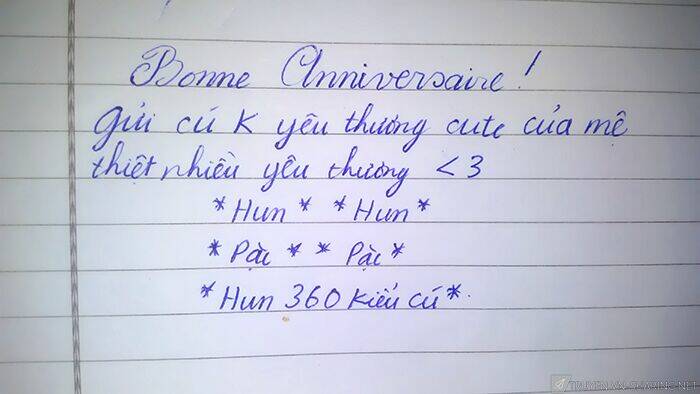 Bonne Anniversaire!
gửi cú K yêu thương cute của mệ
thiệt nhiều yêu thương <3
*Hun* *Hun*
*Pặc* *Pặc*
*Hun 360 kiểu cú*.